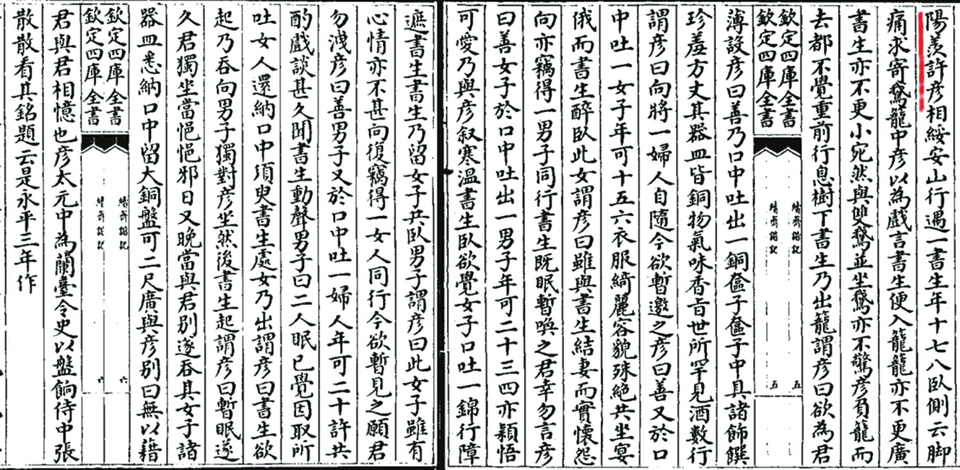 陽羨許彥相綏安山行遇一書生年十七八臥側云脚
痛求寄鵞籠中彥以為戲言書生便入籠籠亦不更廣
書生亦不更小宛然與雙鵞並坐鵞亦不驚彥負籠而
去都不覺重前行息樹下書生乃出籠謂彥曰欲為君
欽定四庫全書
續齊諧記
五
欽定四庫全書
續齊諧記
五
薄設彥曰善乃口中吐出一銅奩子奩子中具諸餙饌
珍羞方丈其器皿皆銅物氣味香旨世所罕見酒數行
謂彥曰向將一婦人自隨今欲暫邀之彥曰善又於口
中吐一女子年可十五六衣服綺麗容貌殊絶共坐宴
俄而書生醉臥此女謂彥曰雖與書生結妻而實懷怨
向亦竊得一男子同行書生既眠暫喚之君幸勿言彥
曰善女子於口中吐出一男子年可二十三四亦穎悟
可愛乃與彥叙寒溫書生臥欲覺女子口吐一錦行障
遮書生書生乃留女子共臥男子謂彥曰此女子雖有
心情亦不甚向復竊得一女人同行今欲暫見之願君
勿洩彥曰善男子又於口中吐一婦人年可二十許共
酌戲談甚久聞書生動聲男子曰二人眠已覺因取所
吐女人還納口中須臾書生處女乃出謂彥曰書生欲
起乃吞向男子獨對彥坐然後書生起謂彥曰暫眠遂
久君獨坐當悒悒邪日又晚當與君別遂吞其女子諸
器皿悉納口中留大銅盤可二尺廣與彥別曰無以藉
欽定四庫全書
續齊諧記
六
欽定四庫全書
續齊諧記
六
君與君相憶也彥太元中為蘭臺令史以盤餉侍中張
散散看其銘題云是永平三年作